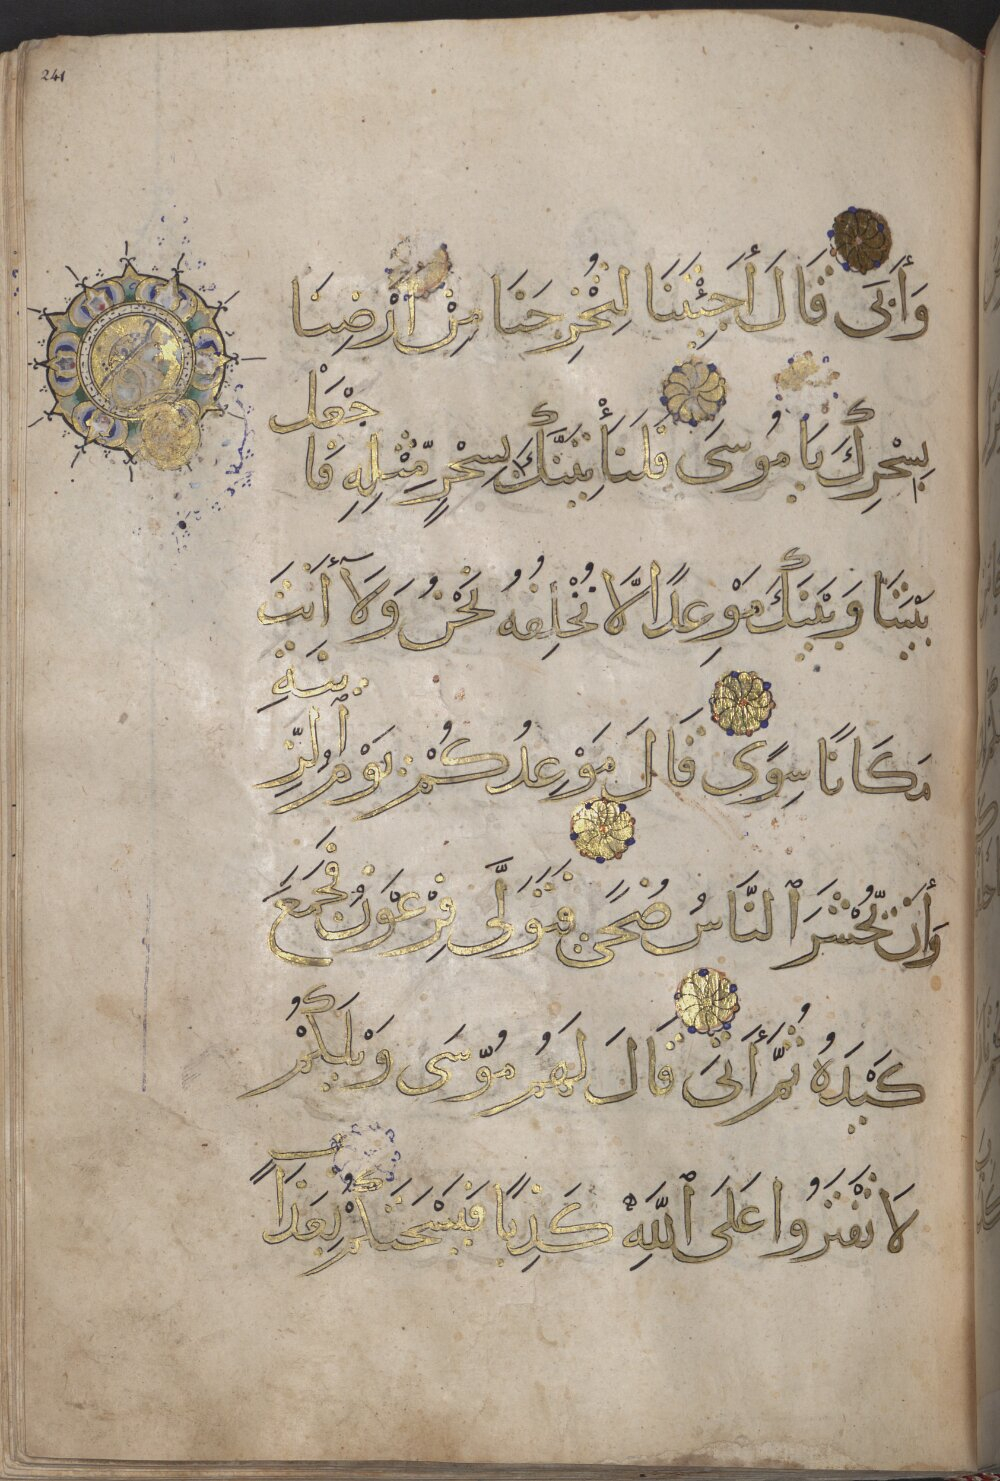 241
وَأَبَىٰ قَالَ أَجِئْتَنَا لِتُخْرِجَنَا مِنْ أَرْضِنَا
بِسِحْرِكَ يَا مُوسَى فَلَنَأْتِيَنَّكَ بِسِحْرٍ مِّثْلِهِ فَاجْعَلْ
بَيْنَنَا وَبَيْنَكَ مَوْعِدًا لَّا نُخْلِفُهُ نَحْنُ وَلَآ أَنتَ
مَكَانًا سِوًى قَالَ مَوْعِدُكُمْ يَوْمُ ٱلزِّينَةِ
وَأَن تُحْشَرَ ٱلنَّاسُ ضُحًى فَتَوَلَّى فِرْعَوْنُ فَجَمَعَ
كَيْدَهُ ثُمَّ أَتَىٰ قَالَ لَهُم مُّوسَى وَيْلَكُمْ
لَا تَفْتَرُوا عَلَى ٱللَّهِ كَذِبًا فَيُسْحِتَكُمْ بِعَذَابٍ